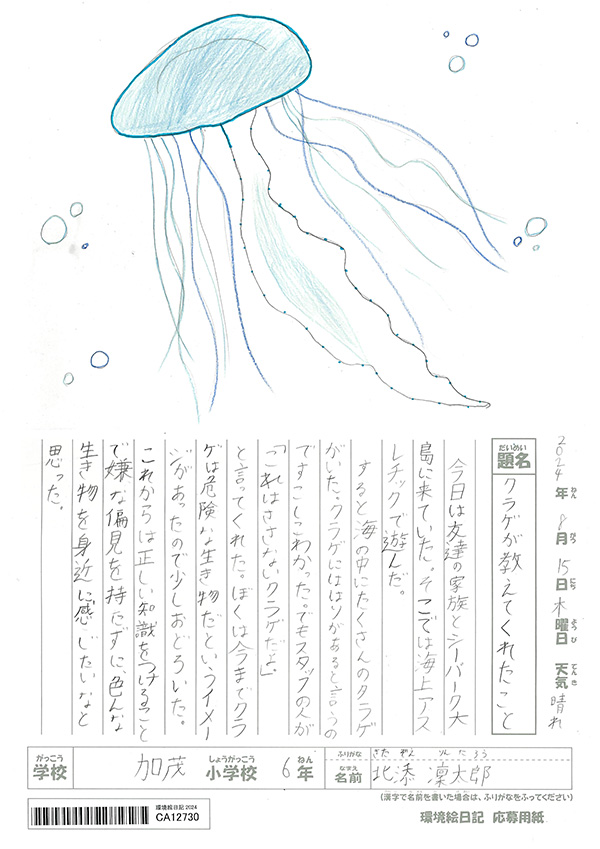 2024年ねん 8月がつ 15日にち 木曜日ようび 天気てんき 晴れ
題名だいめい クラゲが教えてくれたこと
今日は友達の家族とシーパーク大
島に来ていた。そこでは海上アス
レチックで遊んだ。
すると海の中にたくさんのクラゲ
がいた。クラゲにははりがあると言うの
ですこしこわかった。でもスタッフの人が
「これはささないクラゲだよ。」
と言ってくれた。ぼくは今までクラ
ゲは危険な生き物だというイメー
ジがあったので少しおどろいた。
これからは正しい知識をつけること
で嫌な偏見を持たずに、色んな
生き物を身近に感じたいなと
思った。
学校がっこう 加茂 小学校しょうがっこう 6年ねん
ふりがな きたぞえ りんたろう
名前なまえ 北添 凜太郎
(漢字で名前を書いた場合は、ふりがなをふってください)
環境絵日記 2024
CA12730
環境絵日記 応募用紙